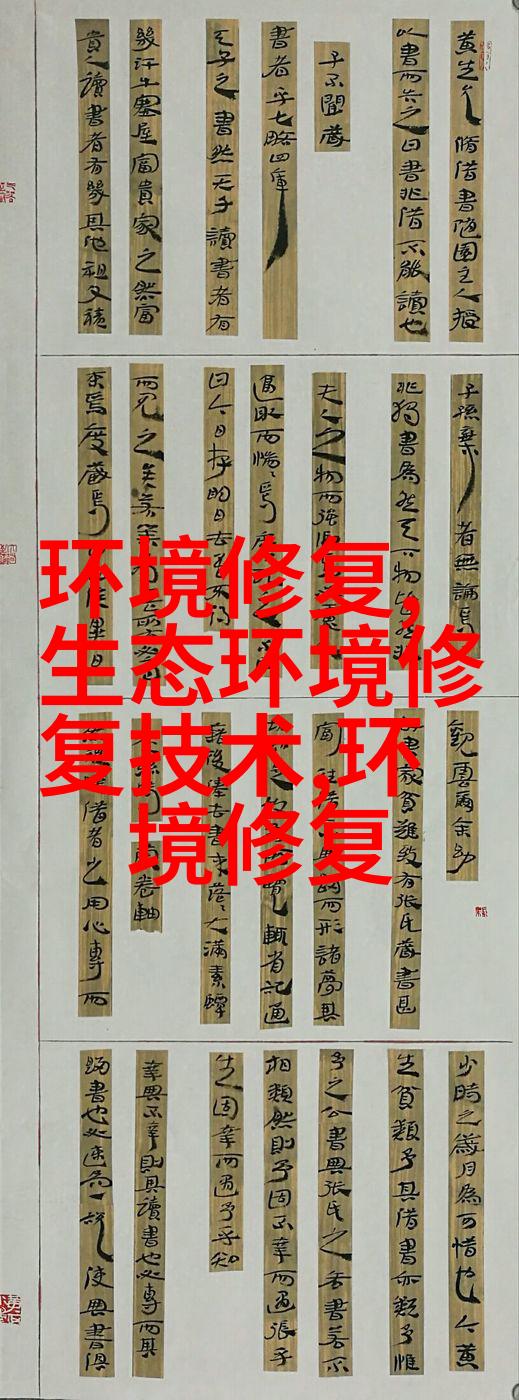 黃生允脩借書隨園主人授
以書而告之曰書非借不能讀也
子不聞藏
書者乎七略四庫
天子之書然天子讀書者有
幾汗牛塞屋富貴家之然富
貴人讀書者有幾其他祖父積
子孫棄者無論焉
非獨書為然天下物皆然非
夫人之物而強假焉
逼取而惴惴焉
曰今日存明日去吾不得
而見之矣若業
束焉庋藏焉曰俟異日
觀云爾余幼
好書家貧難致有張氏藏書甚
富往借不與歸而形諸夢其
切如是故有所覽輒省記通
籍後俸去書來落落大滿素蟫
卷軸
借者之用心專而
少時之歲月為可惜也今黃
生貧類予其借書亦類予惟
予之公書與張氏之吝書若不
相類然則予固不幸而遇張乎
生固幸而遇予乎知
幸與不幸則其讀書也必專而其
歸書也必速為一說使與書俱
环境修复,
生态环境修
复技术,环
境修复